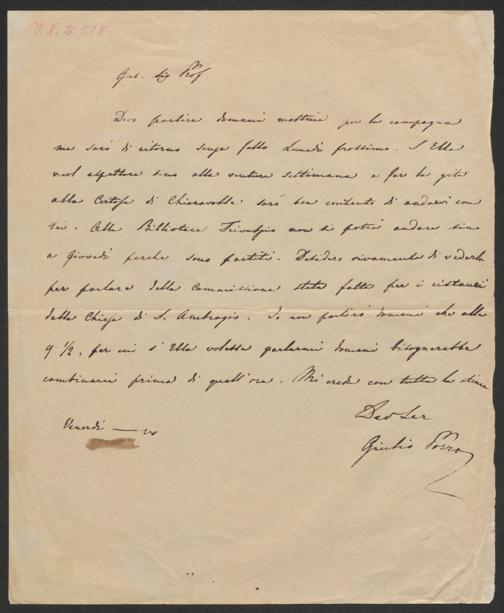 I.N. 21.518
Gent. Sig Prof
Devo partire domani mattina per la campagna
ma sarò di ritorno senza fallo Lunedì prossimo. S'Ella
vuol aspettare sino alla ventura settimana a far la gita
alla Certosa di Chiaravalle sarò ben contento di andarvi con
Lei. Alla Biblioteca Trivulzio non si potrà andare sino
a giovedì perche sono partiti. Desidero vivamente di vederla
per parlare della Commissione stata fatta per i ristauri
della Chiesa di S. Ambrogio. Io non partirò domani che alle
9 1/2, per cui s'Ella volesse parlarmi domani bisognerebbe
combinarci prima di quell'ora. Mi creda con tutta la stima
Dev Ser
Giulio Porro
Venerdì